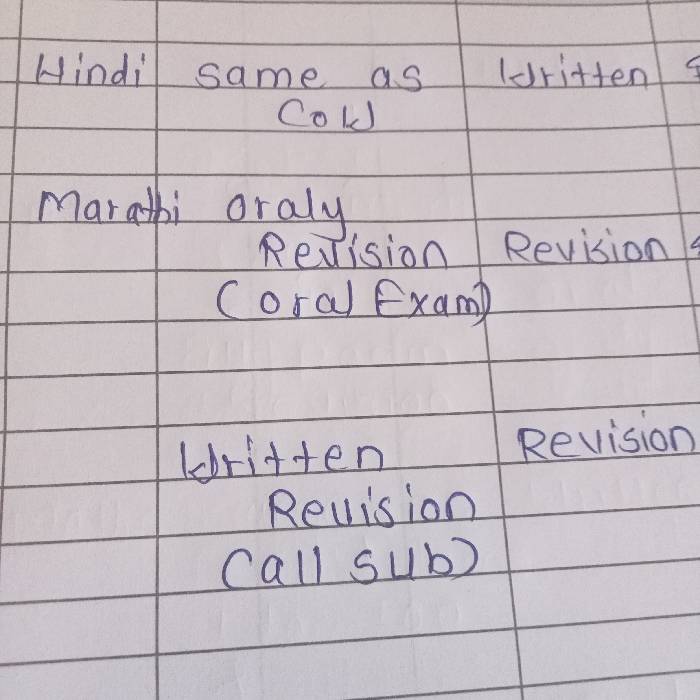 Hindi same as Written
Cow
Marathi oraly
Revision Revision
(oral Exam)
Written Revision
Revision
(all sub)